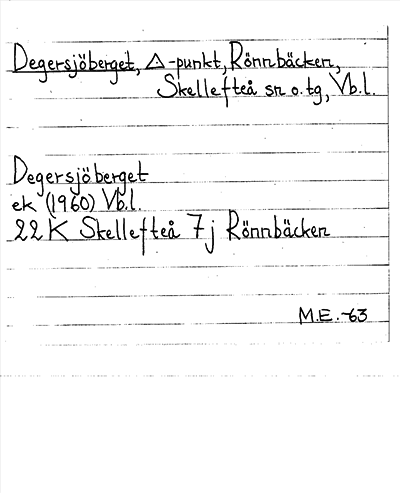 Degersjöberget, △-punkt, Rönnbäcken,
Skellefteå sn o. tg, Vb.l.
Degersjöberget
ek (1960) Vb.l.
22 K Skellefteå 7j Rönnbäcken
M.E. -63